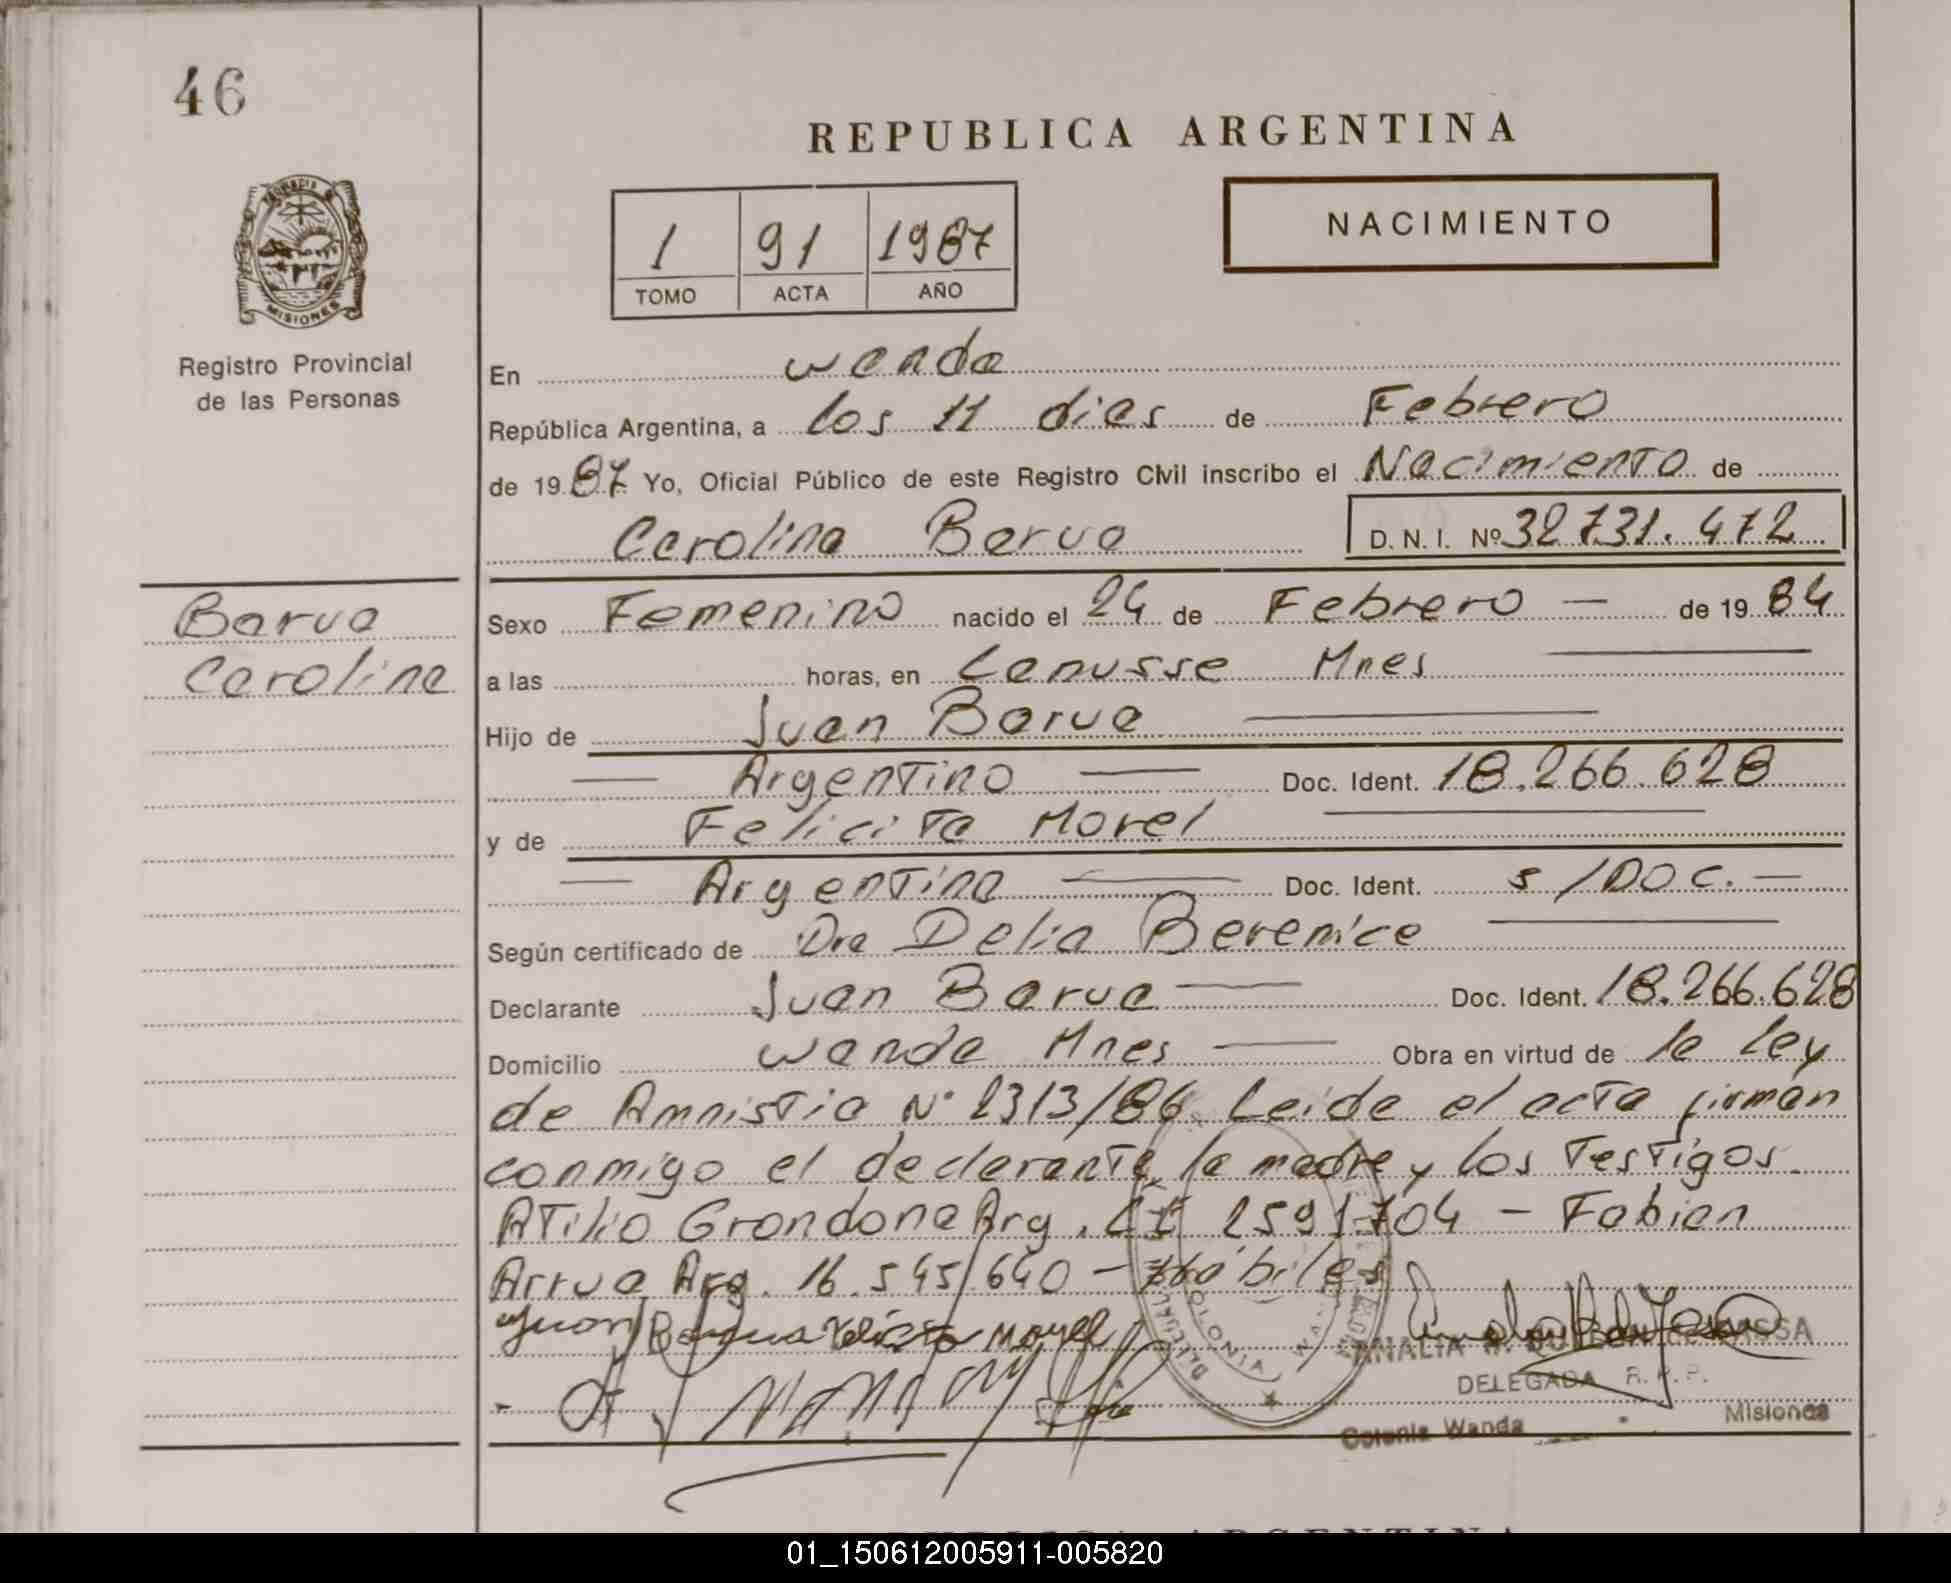 46
REPUBLICA ARGENTINA
NACIMIENTO
1 91 1987
TOMO ACTA AÑO
MISIONES
Registro Provincial
de las Personas
En wanda
República Argentina, a los 11 dias de Febrero
de 19 87 Yo, Oficial Público de este Registro Civil inscribo el Nacimiento de
Carolina Barua D. N. I. Nº 32.731.472
Barua
Carolina
Sexo Femenino nacido el 24 de Febrero — de 19 84
a las horas, en Lanusse Mnes
Hijo de Juan Barua
— Argentino — Doc. Ident. 18.266.628
y de Felicita Morel
— Argentina — Doc. Ident. s/DOC. —
Según certificado de Dra Delia Berenice
Declarante Juan Barua — Doc. Ident. 18.266.628
Domicilio wanda Mnes — Obra en virtud de la ley
de Amnistia Nº 2313/86 Leida el acta firman
conmigo el declarante, la madre y los Testigos.
ATilio Grondona Arg. CI 2591704 - Fabian
Arrua Arg. 16.545.640 - habiles
Juan Barua Felicita Morel
COLONIA WANDA
ANALIA
DELEGADA R. P. P.
Colonia Wanda Misiones
REPUBLICA ARGENTINA
01_150612005911-005820